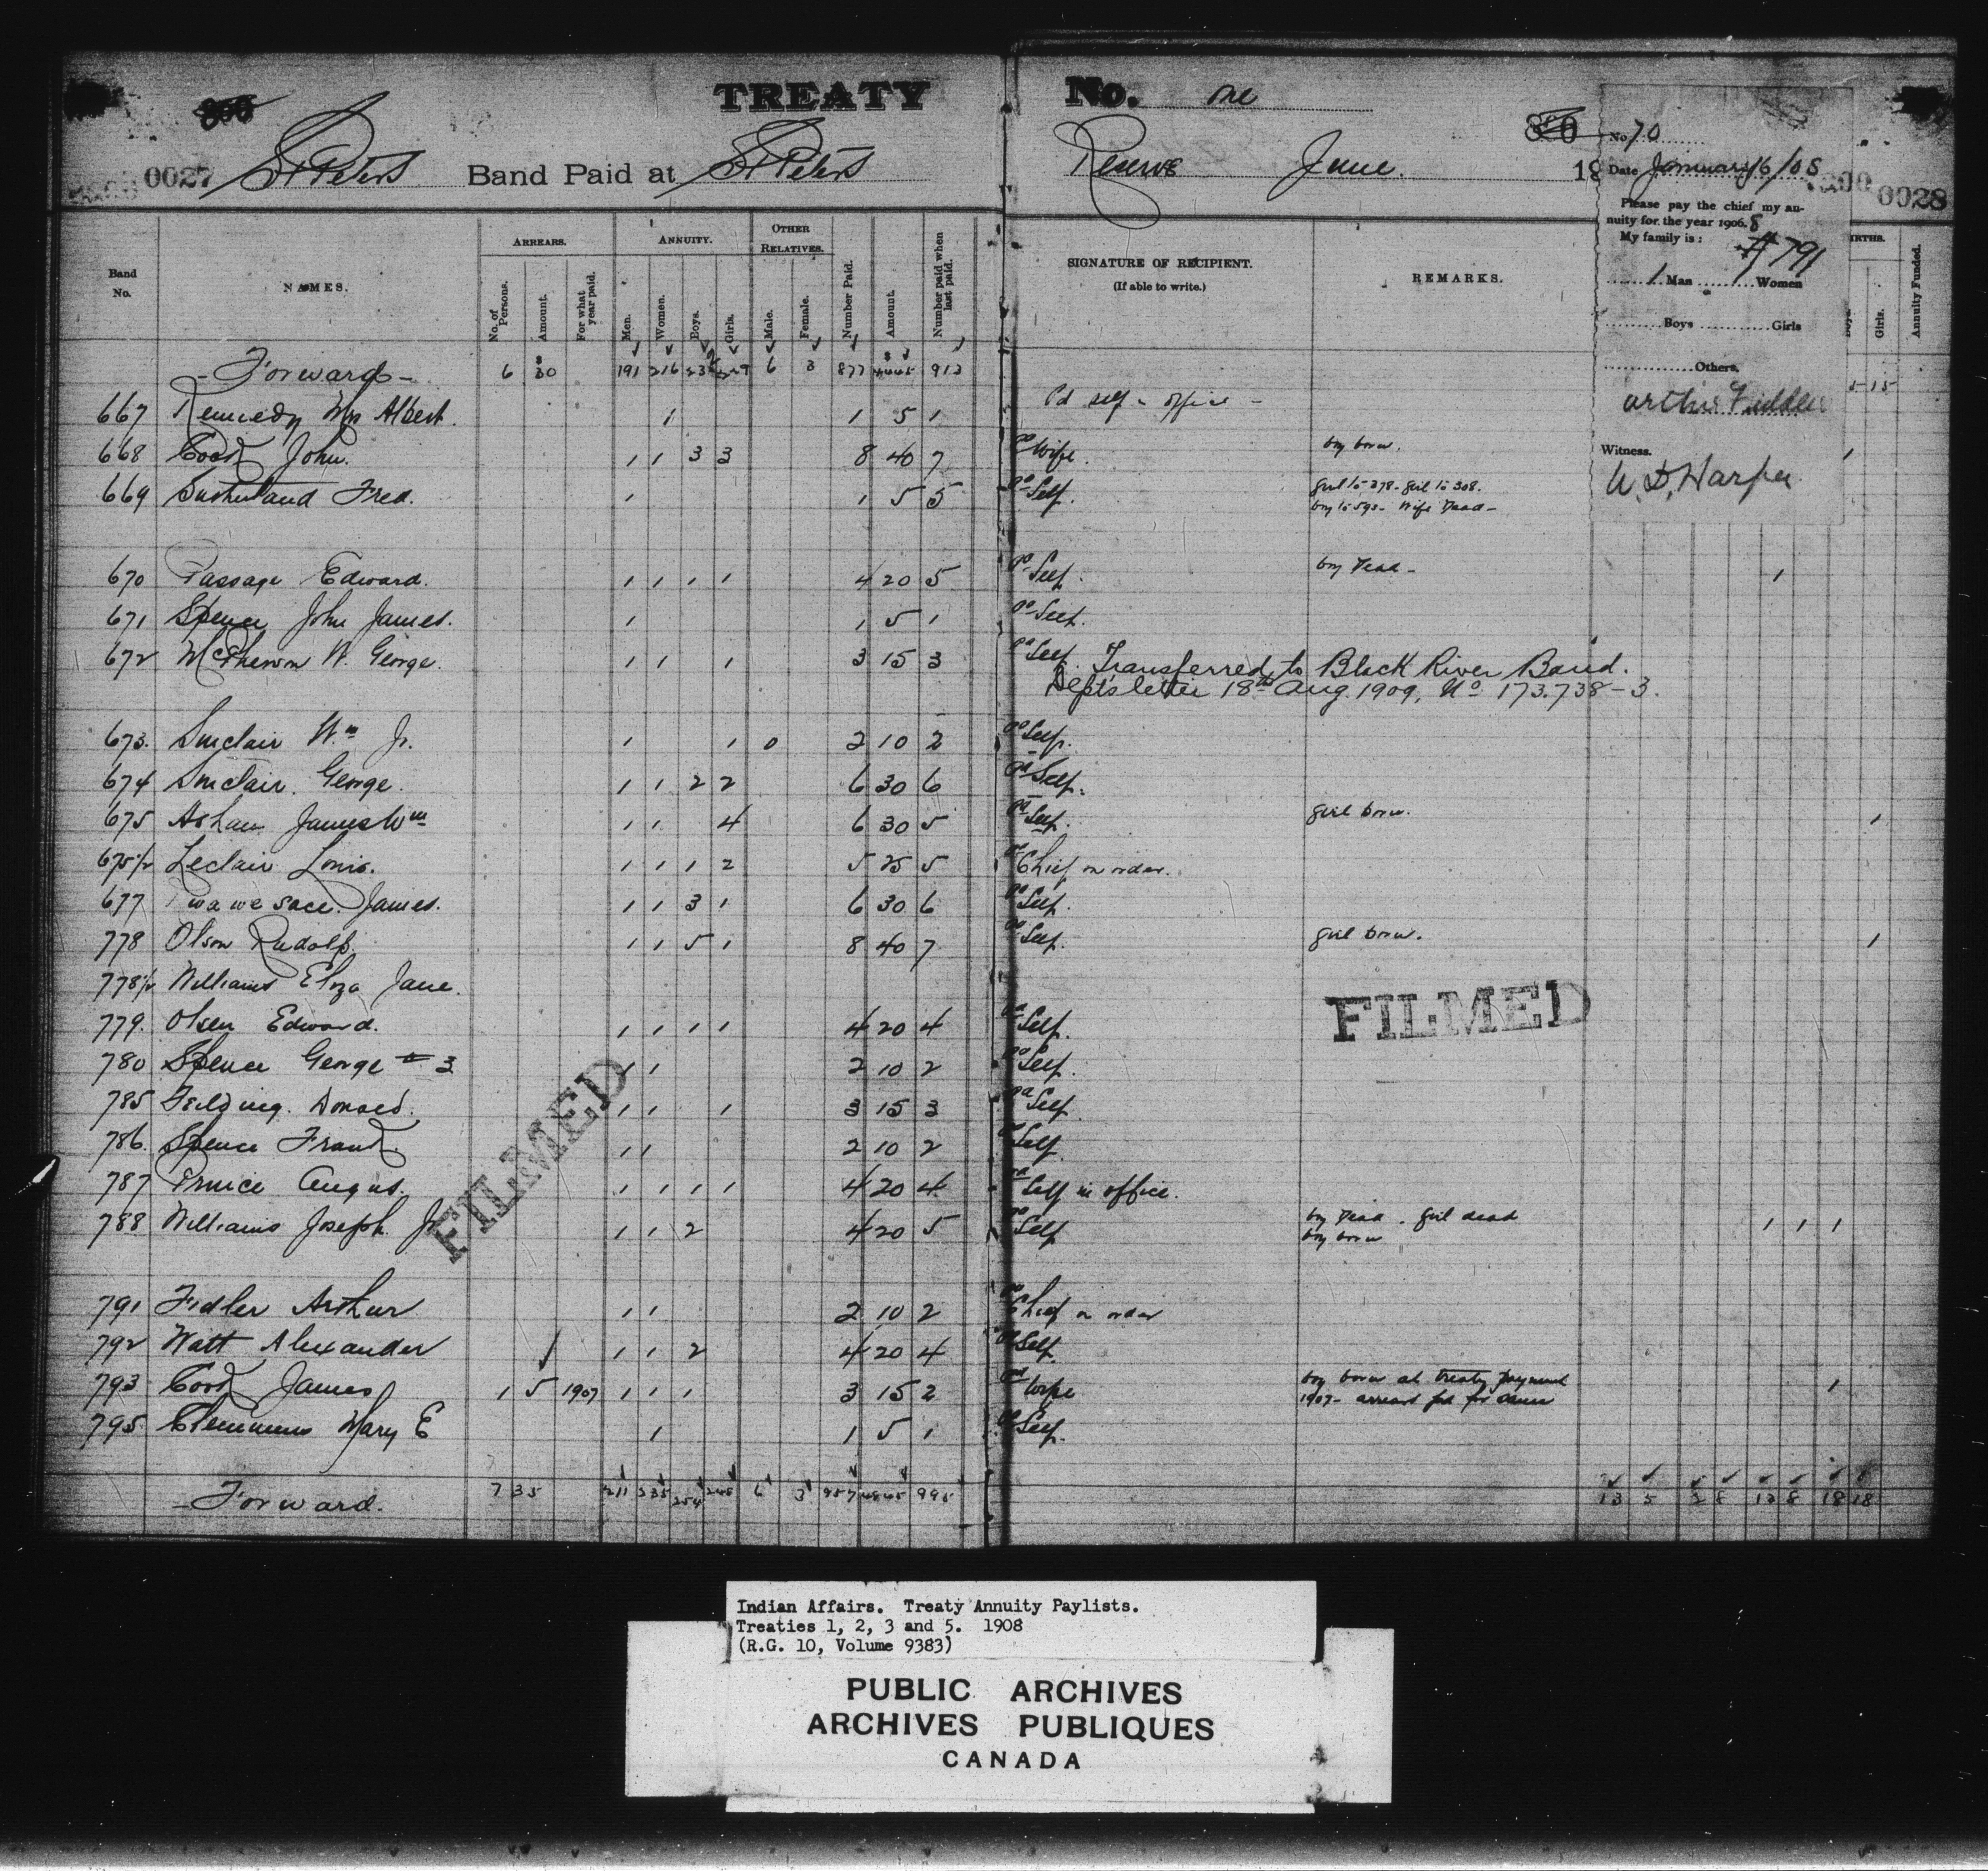 TREATY No. One
0027 St Peters Band Paid at St Peters Reserve June. 19 0028
No 70
Date January 16/08
Please pay the chief my an-
nuity for the year 1906. 8
My family is: # 791
1 Man 1 Women
Boys Girls
Others.
Arthur Fiddler
Witness.
W. D. Harper
ARREARS. ANNUITY. OTHER RELATIVES.
Band No. NAMES. No. of Persons. Amount. For what year paid. Men. Women. Boys. Girls. Male. Female. Number Paid. Amount. Number paid when last paid. SIGNATURE OF RECIPIENT. (If able to write.) REMARKS. IRTHS. Girls. Annuity Funded.
- Forward - 6 $ 30 191 216 229 6 3 877 913 5-15
667 Kennedy Mrs Albert. 1 1 5 1 Pd self - office -
668 Cook John. 1 1 3 3 8 40 7 Pd Wife. boy born. 1
669 Sutherland Fred. 1 1 5 5 Pd Self. girl to 278. girl to 308.
boy to 593 - Wife Dead -
670 Passage Edward. 1 1 1 1 4 20 5 Pd Self. boy Dead - 1
671 Spence John James. 1 1 5 1 Pd Self.
672 McPherson W. George. 1 1 1 3 15 3 Pd Self. Transferred to Black River Band.
Dept's letter 18th Aug. 1909, No 173.738-3.
673. Sinclair Wm Jr. 1 1 0 2 10 2 Pd Self.
674 Sinclair. George. 1 1 2 2 6 30 6 Pd Self.
675 Asham James Wm 1 1 4 6 30 5 Pd Self. girl born. 1
675½ Leclair Louis. 1 1 1 2 5 25 5 Pd Chief on order.
677 James. 1 1 3 1 6 30 6 Pd Self.
778 Olson Rudolf. 1 1 5 1 8 40 7 Pd Self. girl born. 1
778½ Williams Eliza Jane.
779. Olsen Edward. 1 1 1 1 4 20 4 Pd Self.
FILMED
780 Spence George # 3 1 1 2 10 2 Pd Self.
785 Feilding. Donald. 1 1 1 3 15 3 Pd Self
786. Spence Frank. 1 1 2 10 2 Pd Self
FILMED
787 Prince Angus. 1 1 1 1 4 20 4 Pd Self in office.
788 Williams Joseph. Jr 1 1 2 4 20 5 Pd Self boy Dead. girl dead 1 1 1
boy born
791 Fidler Arthur 1 1 2 10 2 Pd Chief on order
792 Watt Alexander 1 1 2 4 20 4 Pd Self.
793 Cook James 1 5 1907 1 1 1 3 15 2 Pd Wife boy born at treaty payment 1
1907 - arrears pd for same
795. Clemmens Mary E 1 1 5 1 Pd Self.
- Forward. 7 35 211 235 254 6 3 957 995 13 5 8 12 8 18 18
Indian Affairs. Treaty Annuity Paylists.
Treaties 1, 2, 3 and 5. 1908
(R.G. 10, Volume 9383)
PUBLIC ARCHIVES
ARCHIVES PUBLIQUES
CANADA